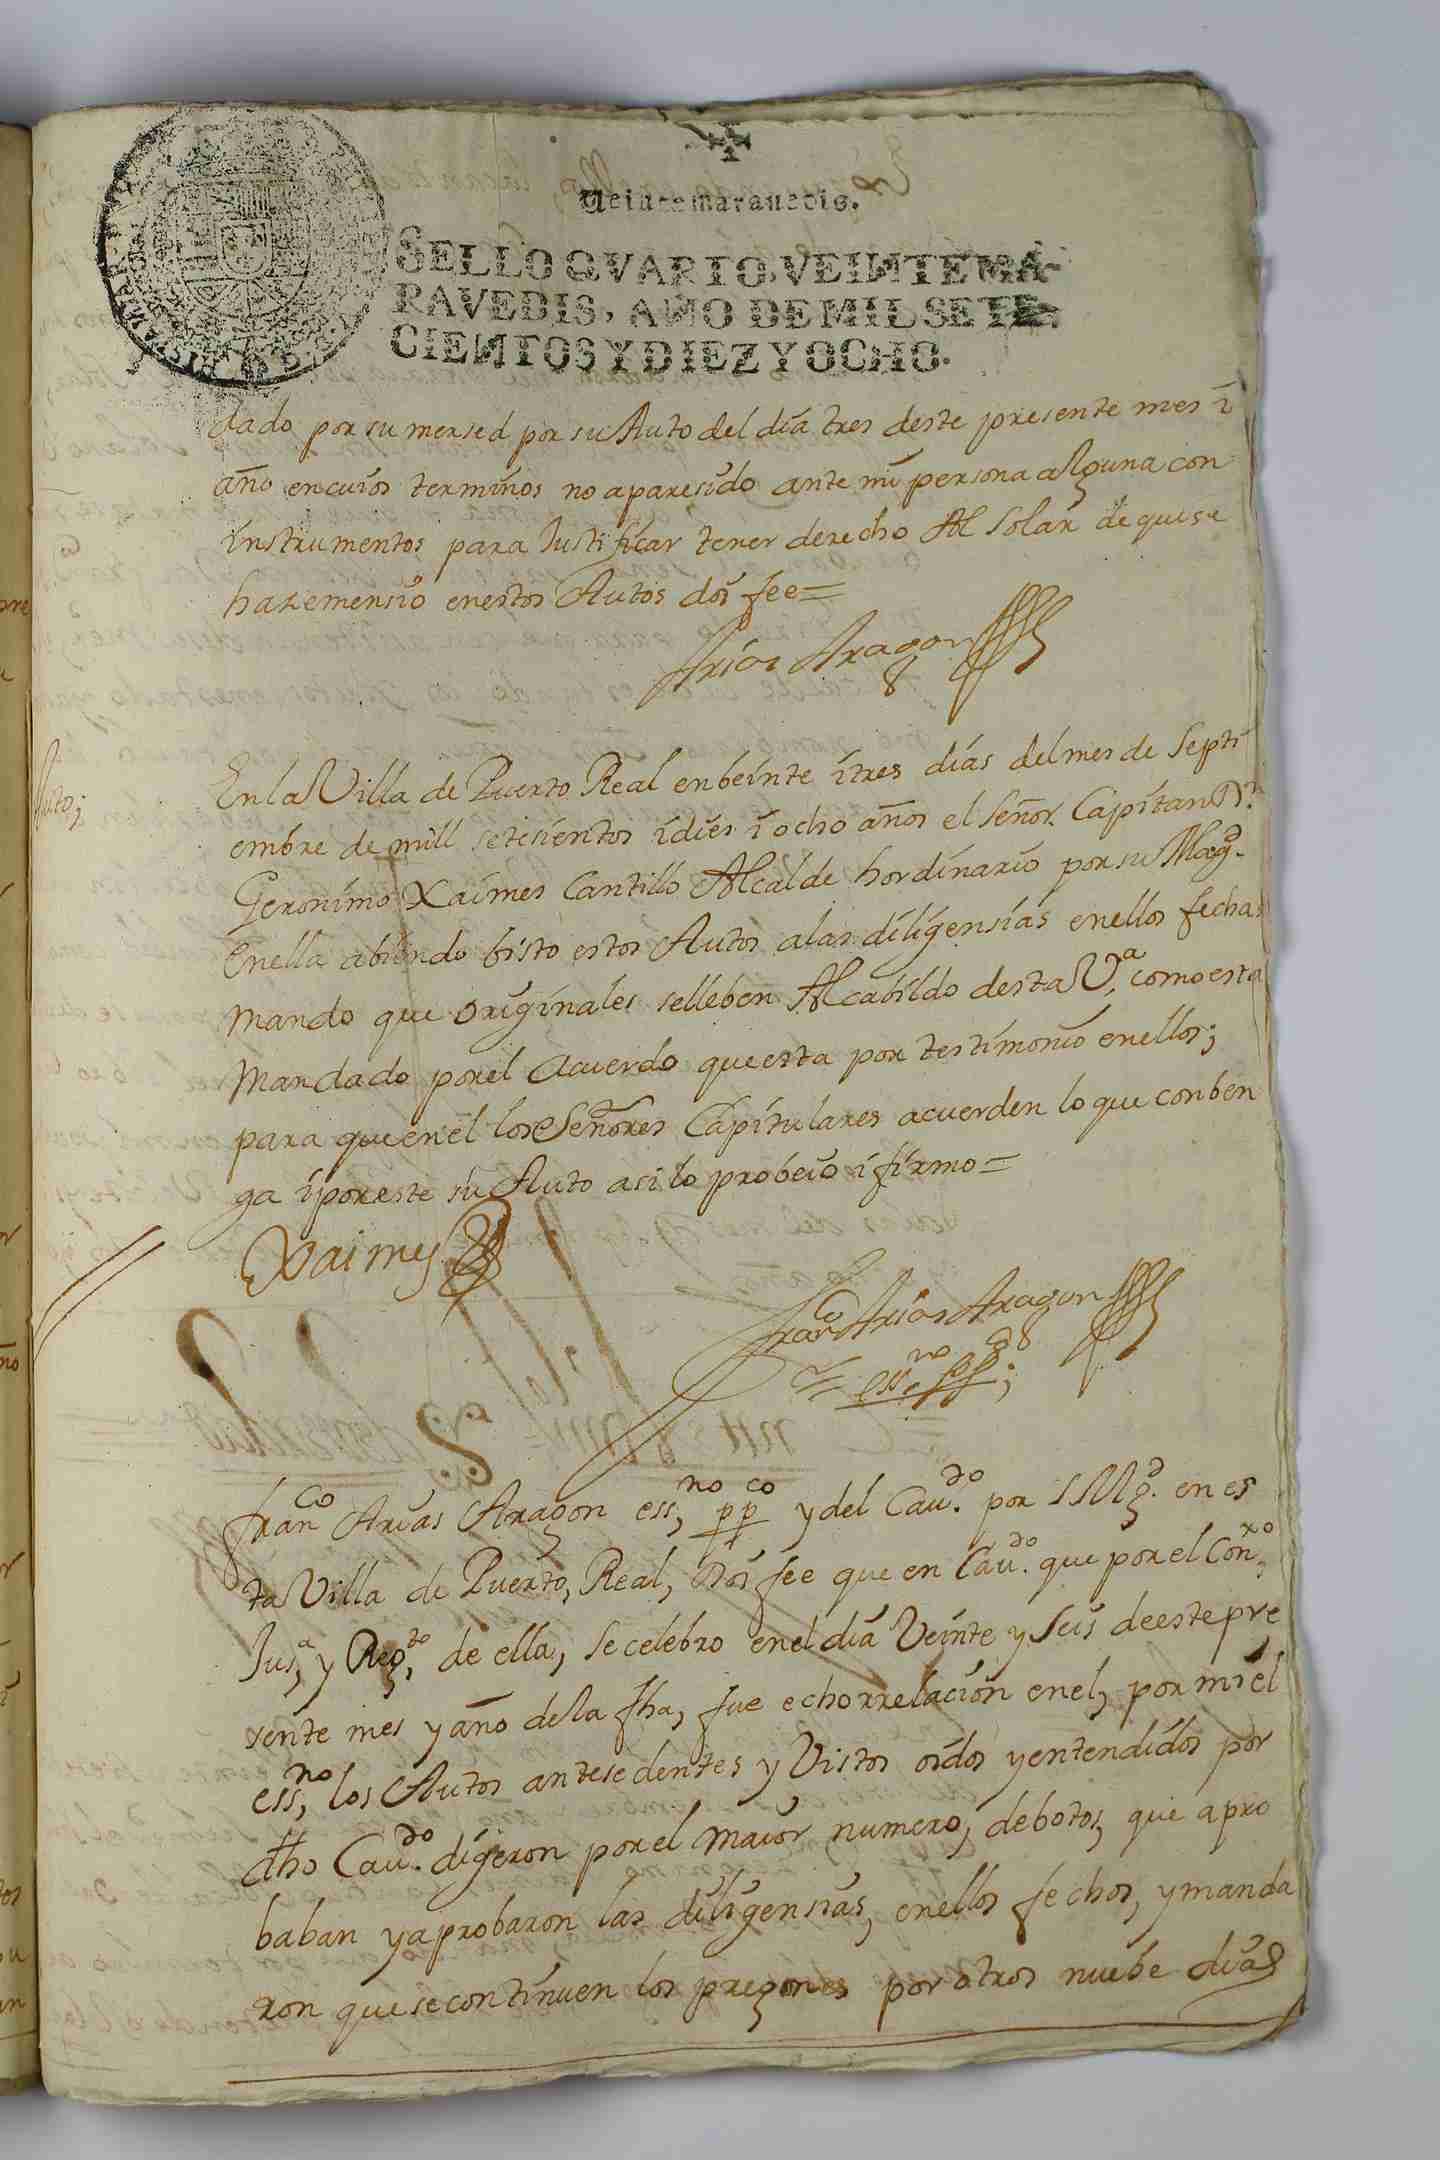 Veinte maravedis.
SELLO QVARTO, VEINTE MA-
RAVEDIS, AÑO DE MIL SETE-
CIENTOS Y DIEZ Y OCHO.
dado por su mersed por su Auto del dia tres deste presente mes i
año en cuios terminos no aparesido ante mi persona alguna con
instrumentos para Justificar tener derecho Al solar de que se
haze mensio en estos Autos doi fee=
Arias Aragon
Auto;
En la Villa de Puerto Real en beinte i tres dias del mes de Septi
embre de mill setesientos i dies i ocho años el Señor Capitan Dn
Geronimo Xaimes Cantillo Alcalde hordinario por su Magd.
en ella abiendo bisto estos Autos a las diligensias en ellos fechas
Mando que originales se lleben Al cabildo desta Va. como esta
Mandado por el Acuerdo que esta por testimonio en ellos;
para que en el los Señores Capitulares acuerden lo que conben
ga i por este su Auto asi lo probeio i firmo=
Xaimes
Franco Arias Aragon
essno pp;
Franco Arias Aragon essno ppco y del Caudo. por S Mgd. en es
ta Villa de Puerto, Real, Doi fee que en Caudo. que por el Conxo,
Jusa, y Regto, de ella, se celebro en el dia Veinte y seis de este pre
sente mes y año de la fha, fue echo rrelacion en el, por mi el
essno, los Autos antesedentes y Vistos oidos y entendidos por
dho Caudo. digeron por el maior numero, de botos, que apro
baban y aprobaron las diligensias, en ellos fechos, y manda
ron que se continuen los pregones por otros nuebe dias